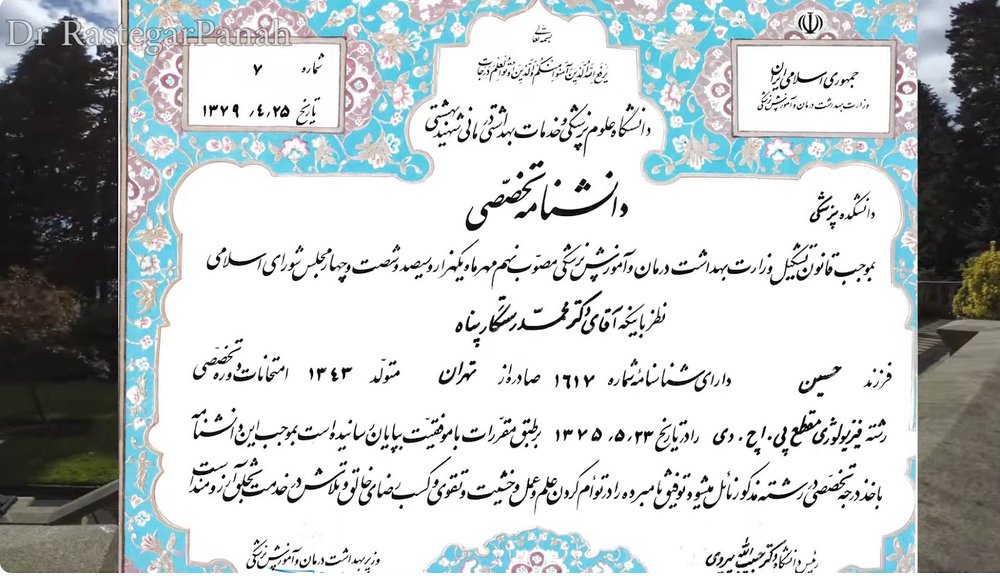 Dr RastegarPanah
جمهوری اسلامی ایران
وزارت بهداشت درمان و آموزش پزشکی
بسمه تعالی
یرفع الله الذین آمنوا منکم و الذین اوتوا العلم درجات
شماره ۷
تاریخ ۱۳۷۹٫۴٫۲۵
دانشگاه علوم پزشکی و خدمات بهداشتی درمانی شهید بهشتی
دانشنامه تخصّصی
دانشکده پزشکی
بموجب قانون تشکیل وزارت بهداشت درمان و آموزش پزشکی مصوب نهم مهرماه یکهزار و سیصد و شصت و چهار مجلس شورای اسلامی
نظر باینکه آقای دکتر محمد رستگار پناه
فرزند حسین دارای شناسنامه شماره ۱۶۱۷ صادره از تهران متولّد ۱۳۴۳ امتحانات دوره تخصّصی
رشته فیزیولوژی مقطع پی. اچ. دی را در تاریخ ۱۳۷۵٫۵٫۲۳ برطبق مقررات با موفقیّت بپایان رسانیده است بموجب این دانشنامه
باخذ درجه تخصّصی در رشته مذکور نائل میشود توفیق نامبرده را در توأم کردن علم و عمل و خشیت و تقوی و کسب رضای خالق و تلاش در خدمت بخلق آرزومند است
رئیس دانشگاه دکتر حبیب الله پیروی
وزیر بهداشت درمان و آموزش پزشکی